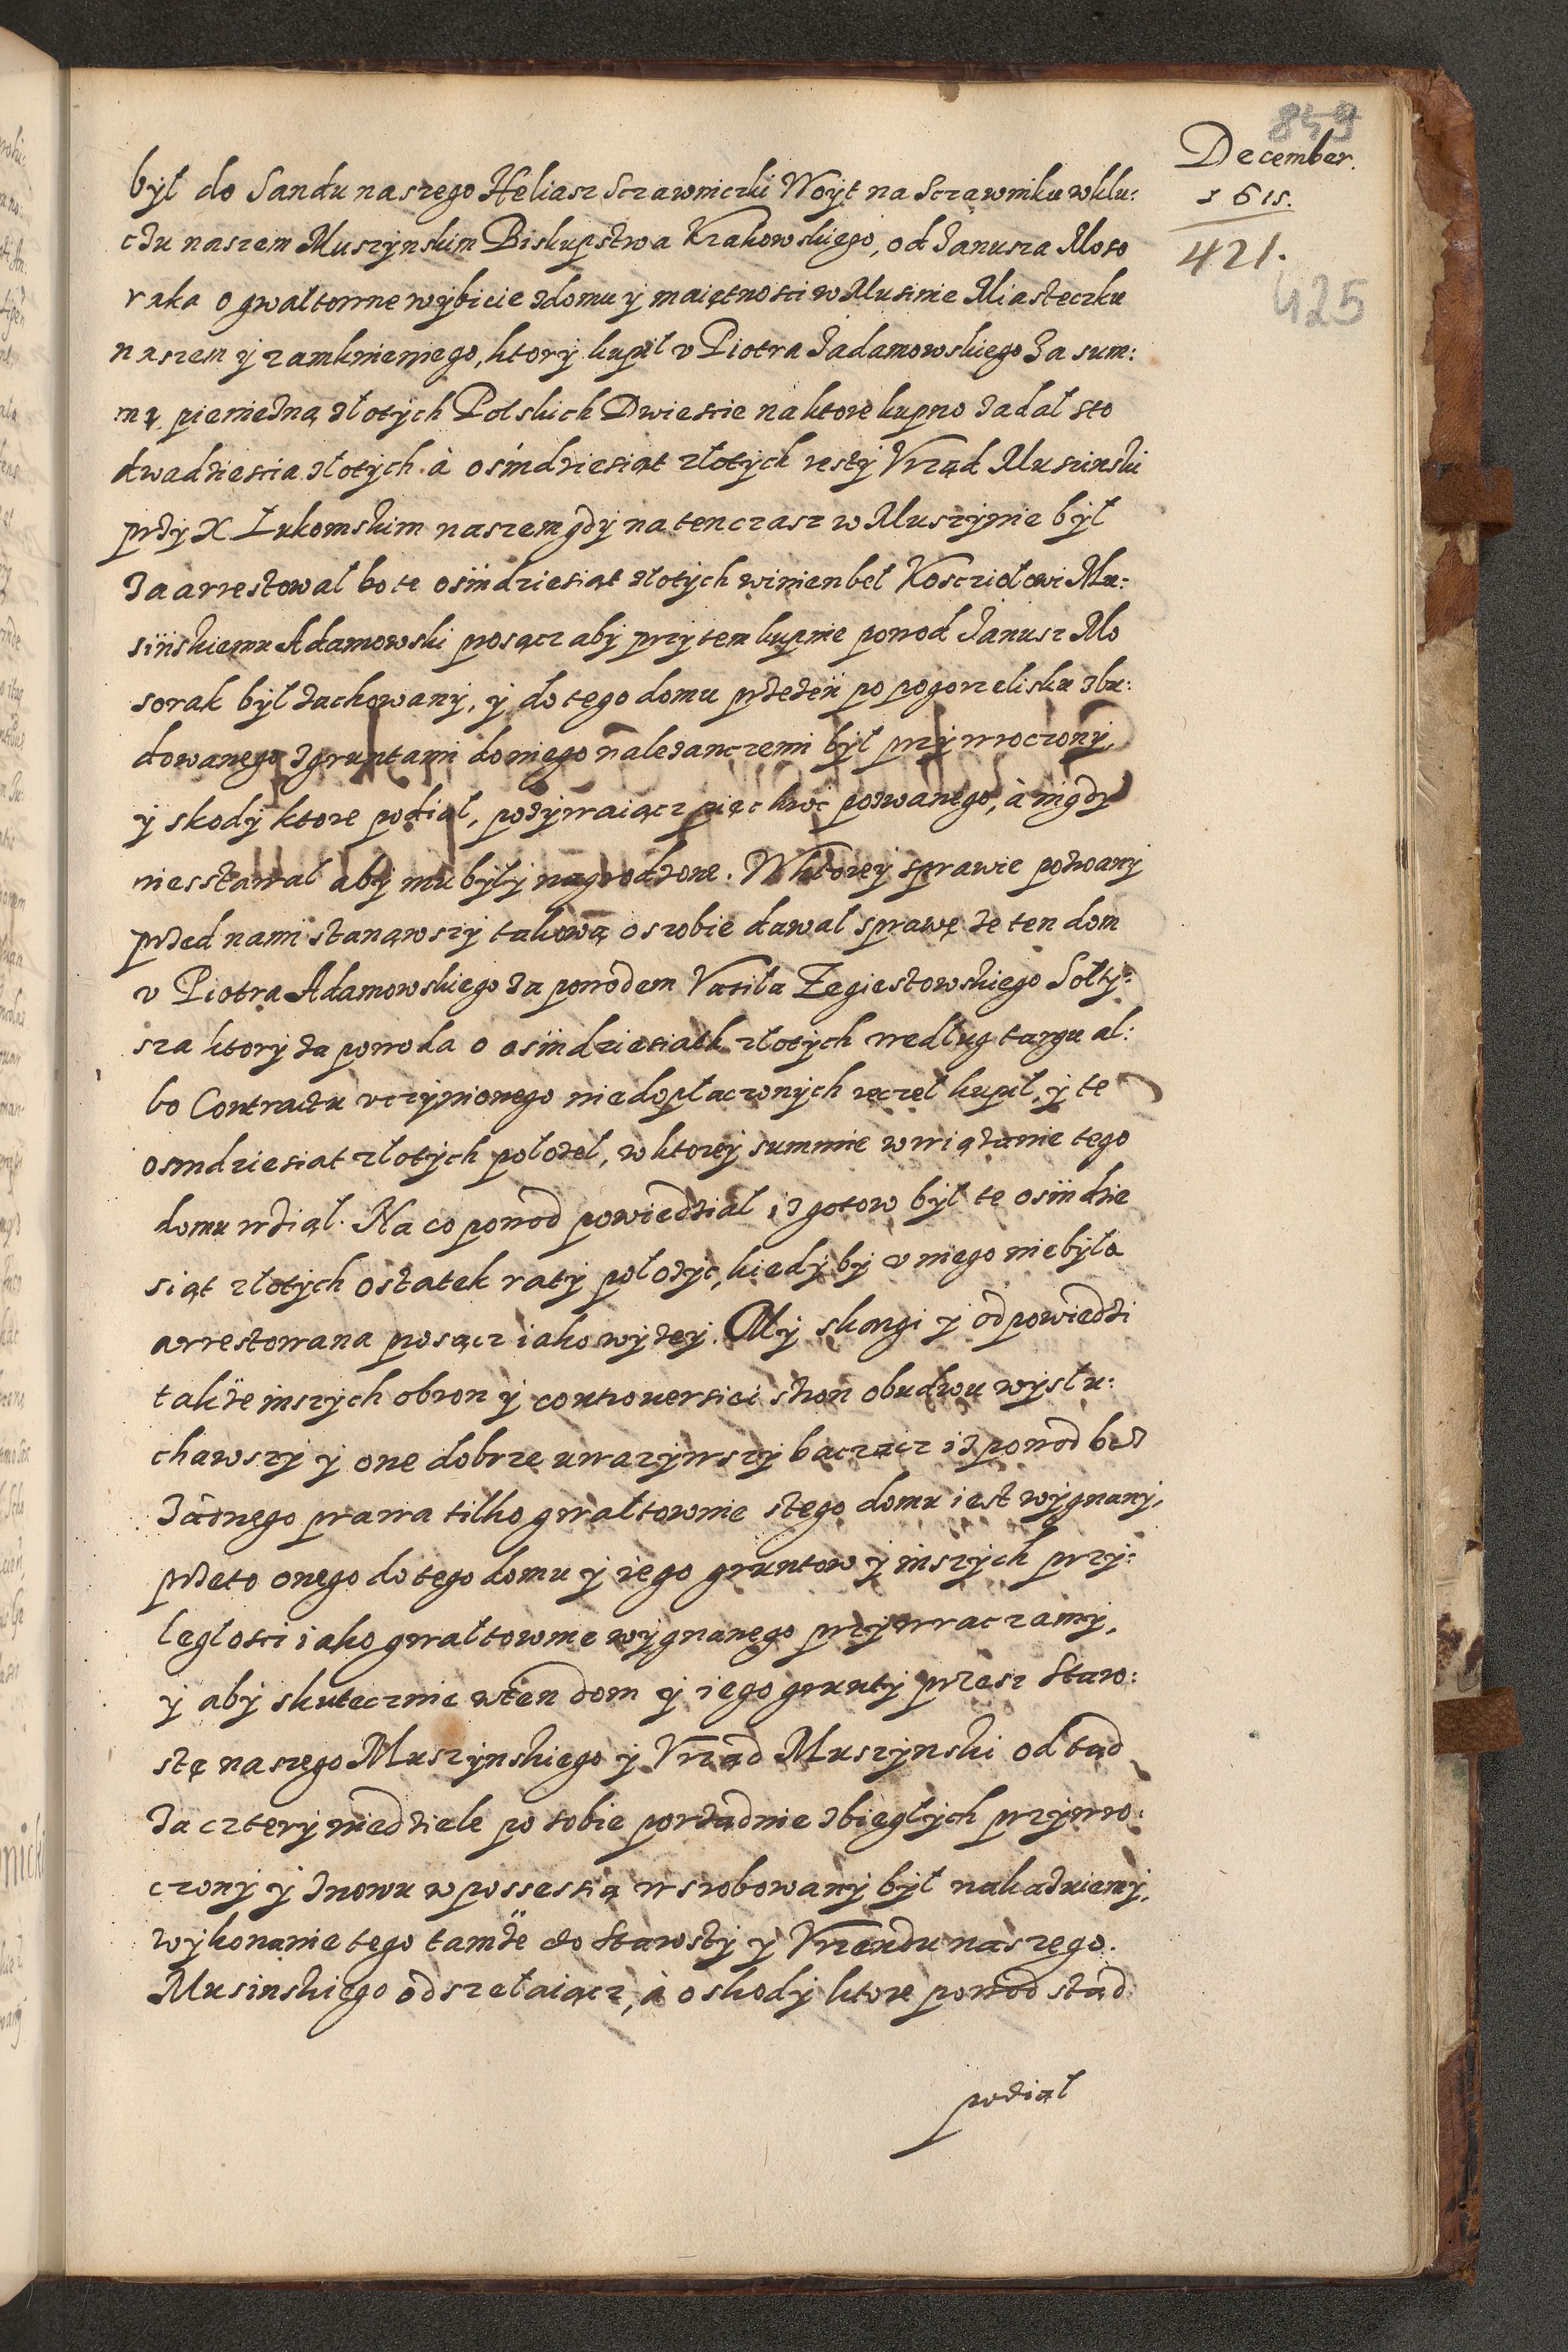 849
December.
1615.
421.
425
był do Sandu naszego Heliasz Sczawniczki Woyt na Sczawniku wklu:
czu naszem Muszynskim Biskupstwa Krakowskiego, od Janusza Moso
raka o gwałtowne wybicie zdomu y maiętnosci w Musinie Miasteczku
naszem y zamknienie go, ktory kupił v Piotra Jadamowskiego za sum:
mę pieniężną złotych Polskich Dwiescie na ktore kupno zadał sto
dwadziescia złotych. à osmdziesiąt złotych resty Vrząd Musinski
przy X Łukomskim naszem gdy natenczasz w Muszynie był
zaarrestował bo te osmdziesiąt złotych winien beł Kosciołowi Mu:
sinskiemu Adamowski prosącz aby przy tem kupnie powod Janusz Mo
sorak był zachowany, y do tego domu przezeń po pogorzelisku zbu:
dowanego zgruntami do niego nalezanczemi był przywroczony,
y skody ktore podiął, pozywaiącz pięc kroć pozwanego, à nigdy
nie stawał aby mu były nagrodzone. W ktorey sprawie pozwany
przed nami stanąwszy takową o sobie dawał sprawę że ten dom
v Piotra Adamowskiego za powodem Vasila Zegiestowskiego Sołty:
sza ktory za powoda o osmdziesiath złotych według targu al:
bo Contractu vczynionego niedopłaczonych ręczeł kupił, y te
osmdziesiat złotych położeł, w ktorey summie wwiązanie tego
domu wziął. Na co powod powiedział, iż gotow był te osmdzie
siąt złotych ostatek raty położyc, kiedy by v niego nie była
arrestowana prosącz iako wyżey. My skargi y odpowiedzi
także inszych obron y controuersiei stron obudwu wysłu:
chawszy y one dobrze uwazywszy bacząc iż powod bez
żadnego prawa tilko gwałtownie stego domu iest wygnany,
przeto onego do tego domu y iego gruntow y inszych przy:
ległosci iako gwałtownie wygnanego przywraczamy,
y aby skutecznie wten dom y iego grunty przesz Staro:
stę naszego Muszynskiego y Vrząd Muszynski od tąd
za cztery niedziele po sobie porządnie zbiegłych przywro:
czony y znowu w possessią wsrobowany był nakazuiemy,
wykonanie tego tamże do Starosty y Vrzendu naszego
Musinskiego odszełaiącz, à o skody ktore powod stąd
podiął